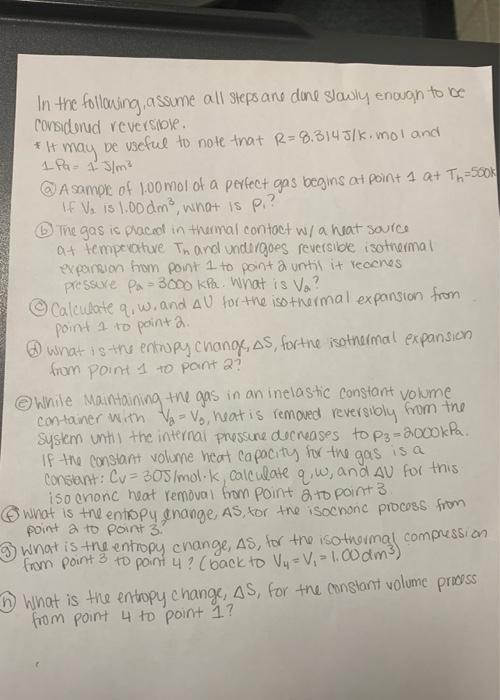 In the following, assume all steps are done slowly enough to be
considered reversible.
* It may be useful to note that R=8.314J/K.mol and
1Pa= 1 J/m³
ⓐ A sample of 1.00mol of a perfect gas begins at point 1 at Th=550K
If V₁ is 1.00dm³, what is P₁?
ⓑ The gas is placed in thermal contact w/ a heat source
at temperature Th and undergoes reversible isothermal
expansion from point 1 to point 2 until it reaches
pressure P₂ = 3000 kPa. What is V₂?
ⓒ Calculate q, w, and ΔU for the isothermal expansion from
point 1 to point 2.
ⓓ What is the entropy change, ΔS, for the isothermal expansion
from point 1 to point 2?
ⓔ While Maintaining the gas in an inelastic constant volume
container with V₂ = V₃, heat is removed reversibly from the
System until the internal pressure decreases to P₃=2000kPa.
If the constant volume heat capacity for the gas is a
constant: Cv = 30J/mol.K, calculate q, w, and ΔU for this
isochoric heat removal from Point 2 to point 3
ⓕ What is the entropy change, ΔS, for the isochoric process from
point 2 to point 3?
ⓖ What is the entropy change, ΔS, for the isothermal compression
from point 3 to point 4? (back to V₄ = V₁ = 1.00dm³)
ⓗ What is the entropy change, ΔS, for the constant volume process
from point 4 to point 1?